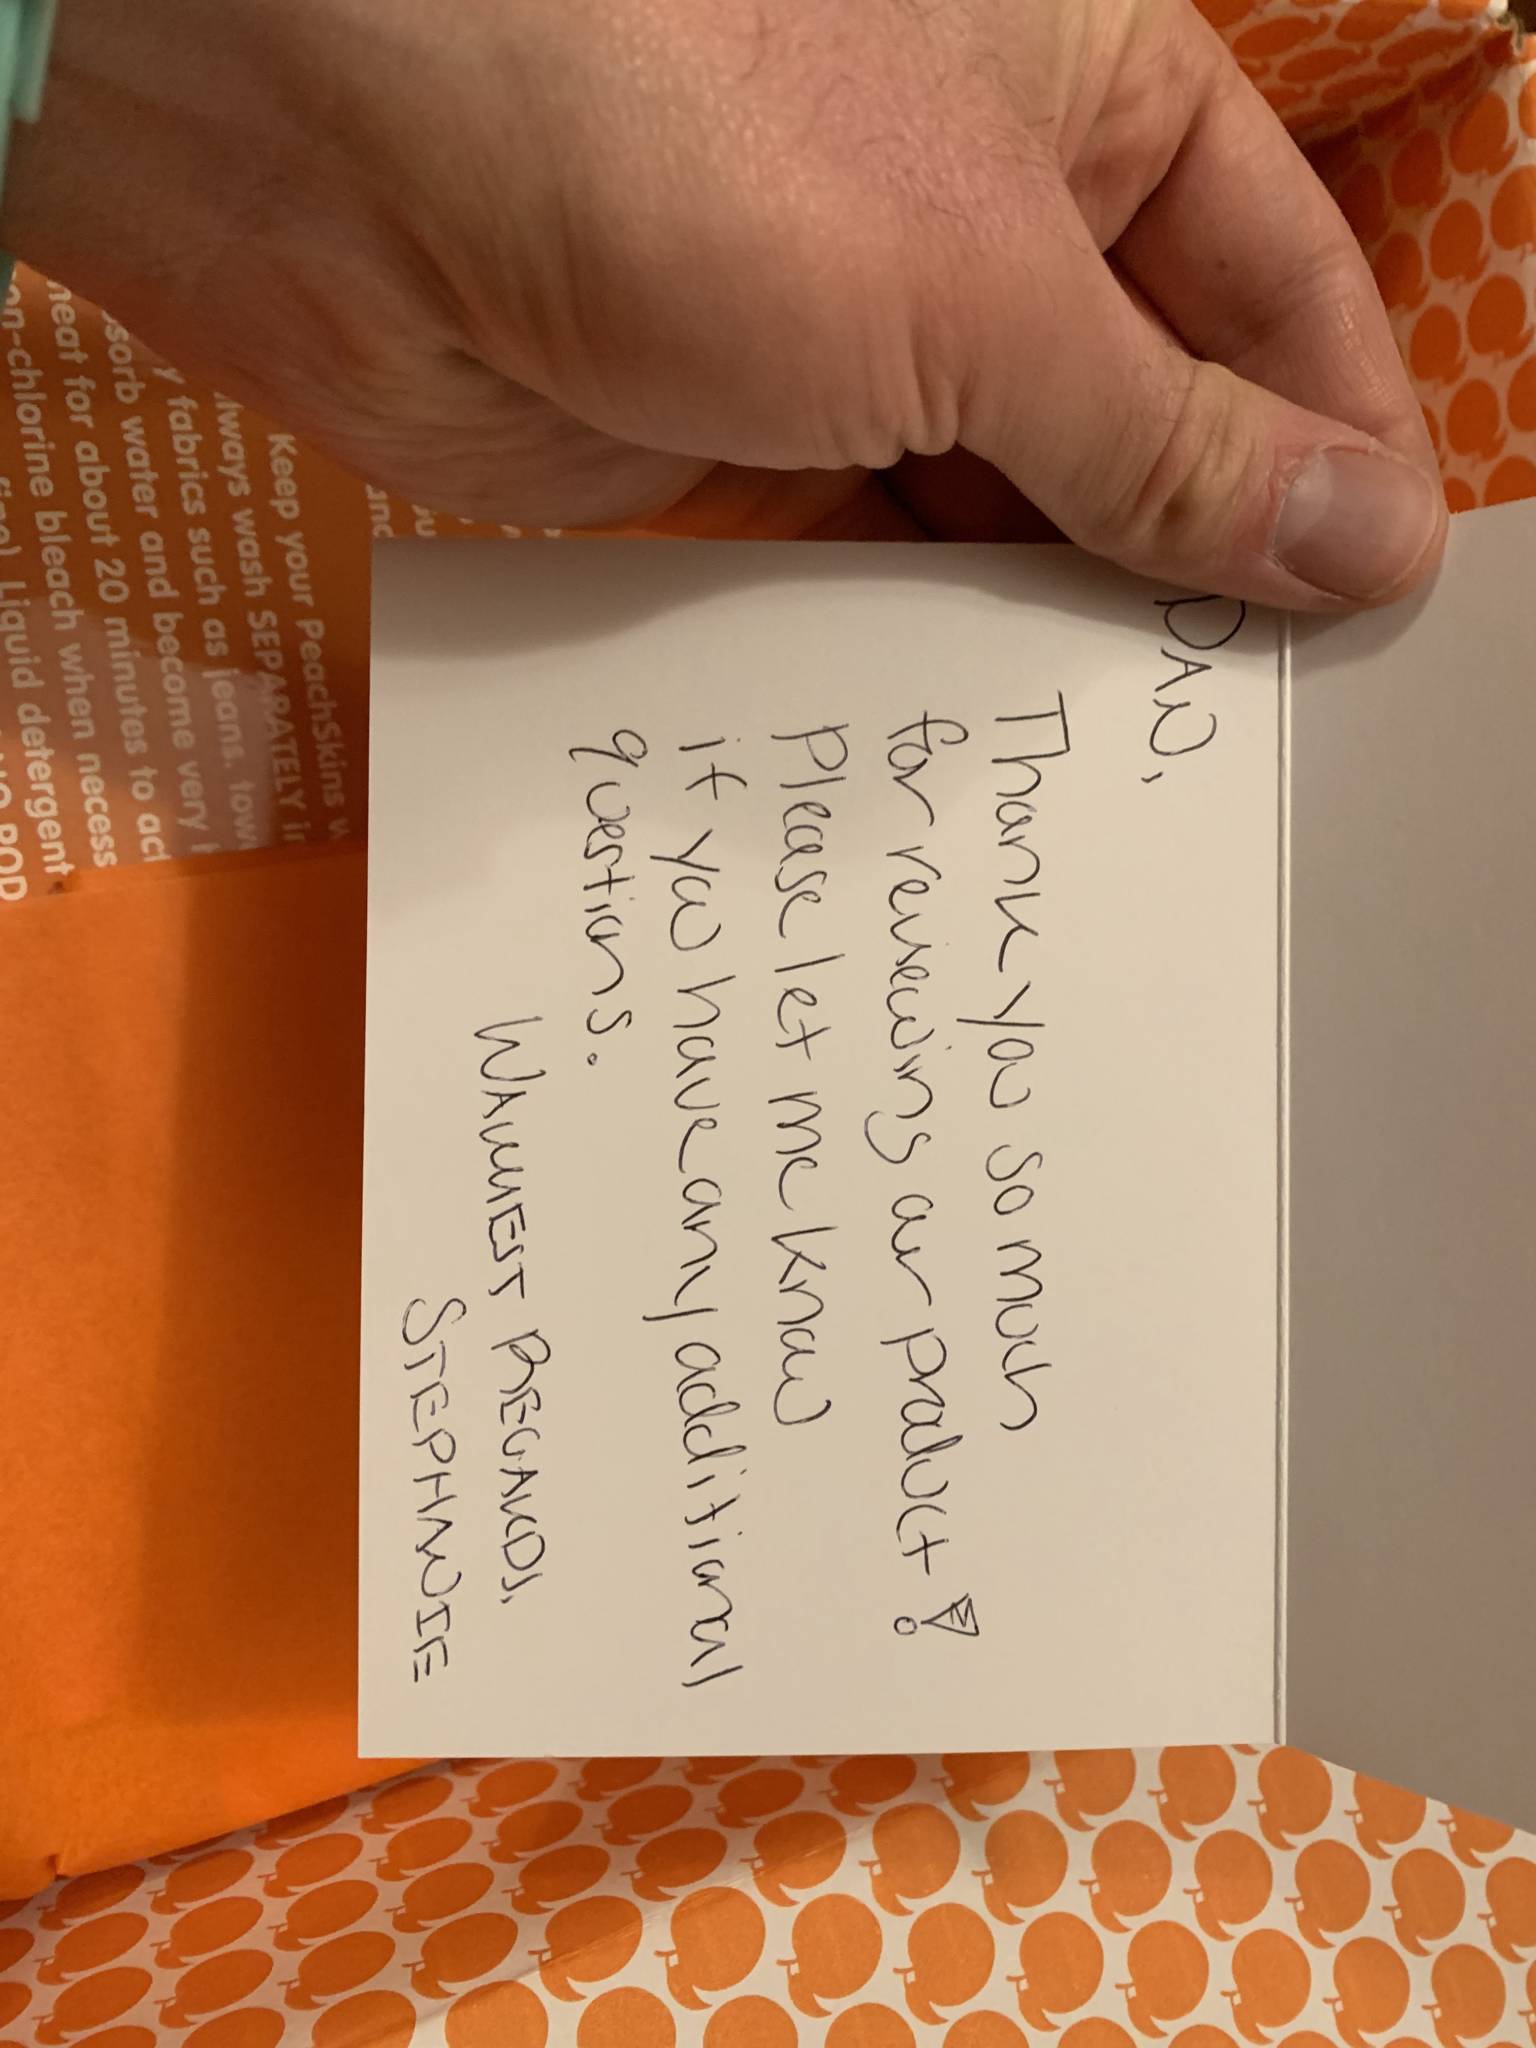 DAN,
Thank you so much
for reviewing our product!
Please let me know
if you have any additional
questions.
WARMEST REGARDS,
STEPHANIE
Keep your PeachSkins
lways wash SEPARATELY
y fabrics such as jeans, tow
sorb water and become very
heat for about 20 minutes to act
on-chlorine bleach when necess
Liquid detergent
NO POD